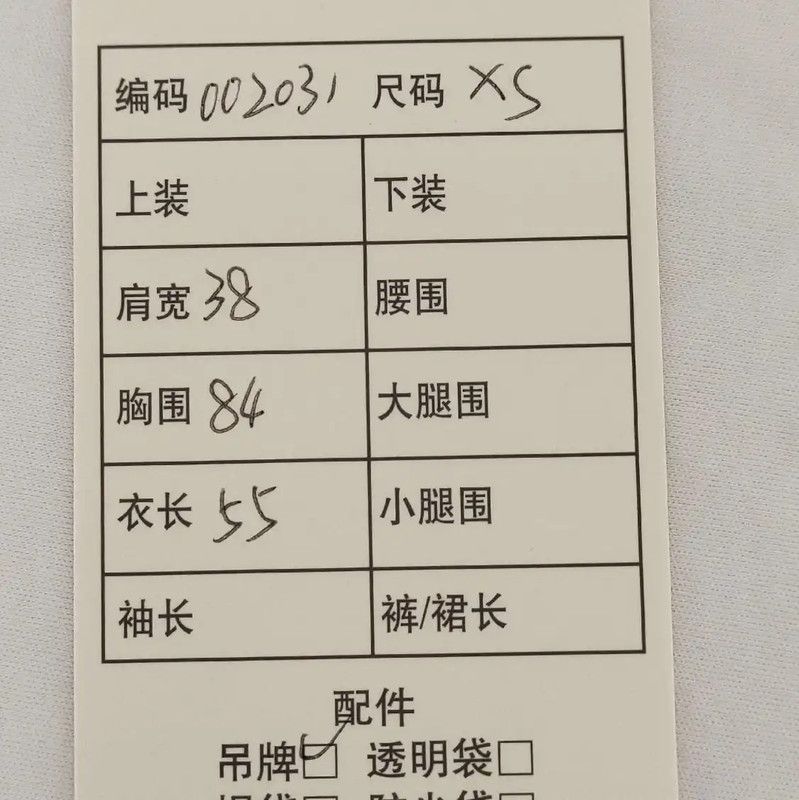 编码 002031 尺码 XS
上装 下装
肩宽 38 腰围
胸围 84 大腿围
衣长 55 小腿围
袖长 裤/裙长
配件
吊牌☑ 透明袋□